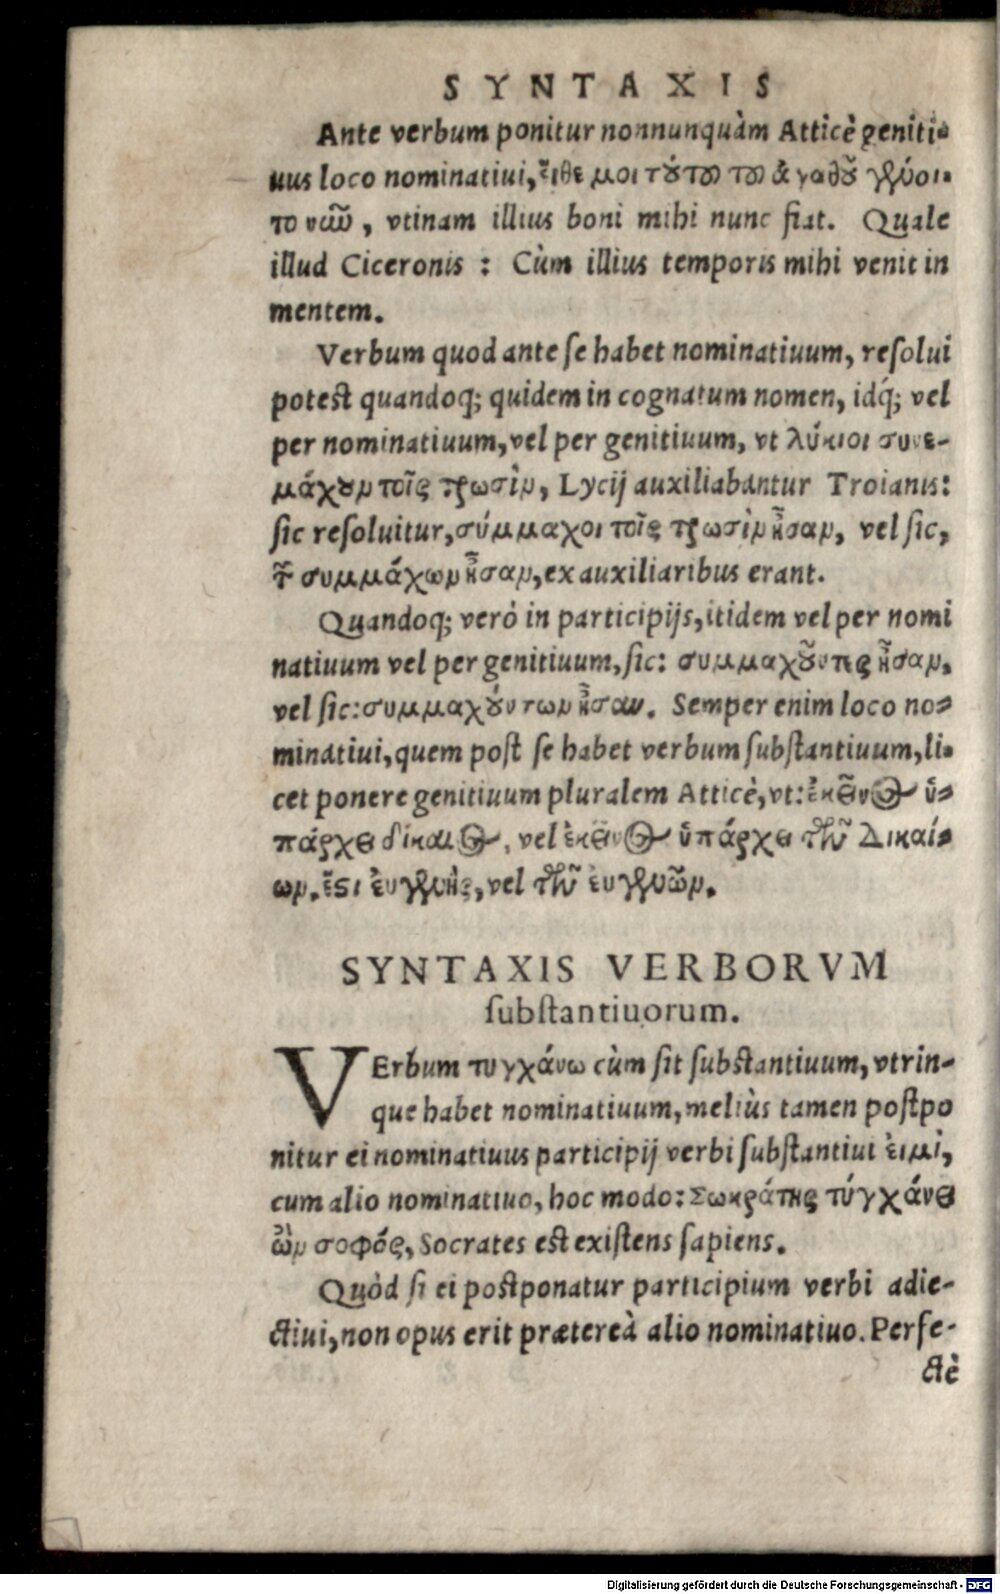 SYNTAXIS
Ante verbum ponitur nonnunquàm Atticè geniti-
uus loco nominatiui, ἔιθε μοι τούτου του ἀγαθοῦ γένοι-
το νῶϊ, vtinam illius boni mihi nunc fiat. Quale
illud Ciceronis : Cùm illius temporis mihi venit in
mentem.
Verbum quod ante se habet nominatiuum, resolui
potest quandoq; quidem in cognatum nomen, idq́; vel
per nominatiuum, vel per genitiuum, vt λύκιοι συνε-
μάχουν τοῖς τρωσὶν, Lycij auxiliabantur Troianis:
sic resoluitur, σύμμαχοι τοῖς τρωσὶν ἦσαν, vel sic,
τῶν συμμάχων ἦσαν, ex auxiliaribus erant.
Quandoq; verò in participijs, itidem vel per nomi
natiuum vel per genitiuum, sic: συμμαχοῦντες ἦσαν,
vel sic: συμμαχούντων ἦσαν. Semper enim loco no-
minatiui, quem post se habet verbum substantiuum, li-
cet ponere genitiuum pluralem Atticè, vt: ἐκεῖνος ὑ-
πάρχει δίκαιος, vel ἐκεῖνος ὑπάρχει τῶν δικαί-
ων. ἔστι ἐυγενὴς, vel τῶν ἐυγενῶν.
SYNTAXIS VERBORVM
substantiuorum.
VErbum τυγχάνω cùm sit substantiuum, vtrin-
que habet nominatiuum, meliùs tamen postpo
nitur ei nominatiuus participij verbi substantiui ἐιμὶ,
cum alio nominatiuo, hoc modo: Σωκράτης τύγχάνει
ὢν σοφός, Socrates est existens sapiens.
Quòd si ei postponatur participium verbi adie-
ctiui, non opus erit prætereà alio nominatiuo. Perfe-
ctè
Digitalisierung gefördert durch die Deutsche Forschungsgemeinschaft - DFG